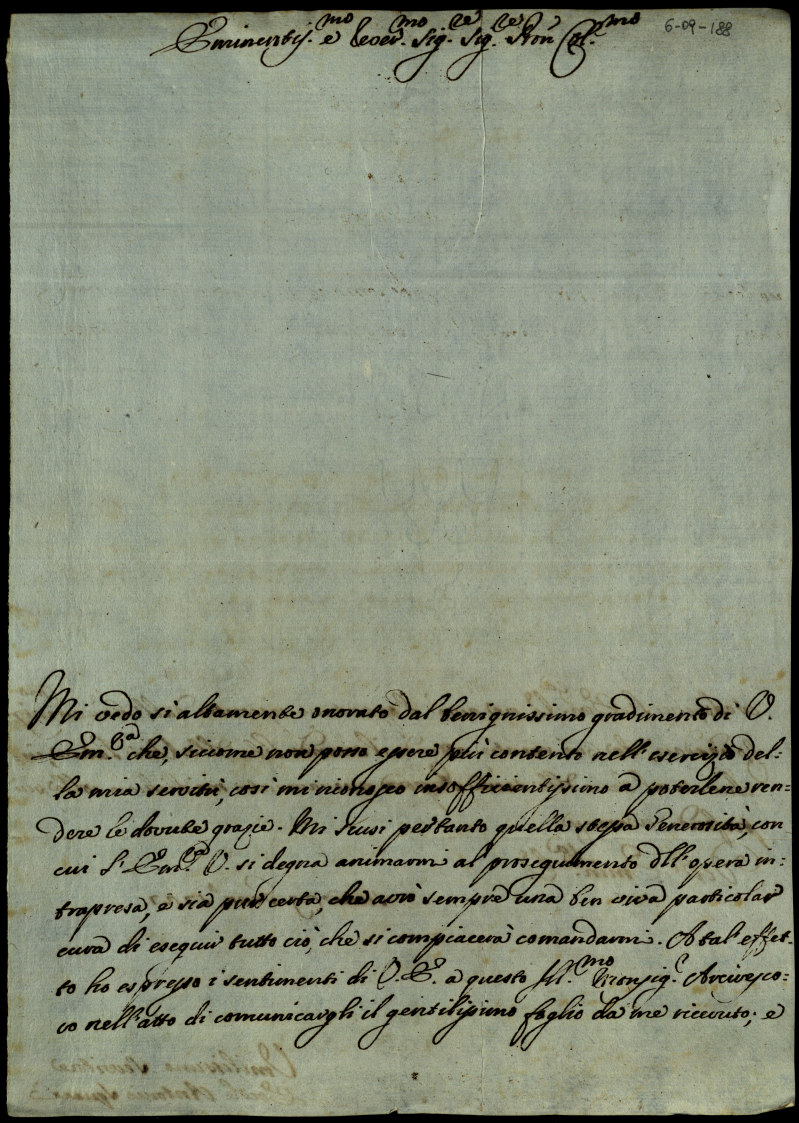 6-09-188
Eminentis.mo e Rev.mo Sig.re Sig.re Pron Col.mo
Mi vedo sì altamente onorato dal benignissimo gradimento di V.
Em.za che, siccome non posso essere più contento nell'esercizio del-
la mia servitù, così mi riconosco insofficientissimo a poterlene ren-
dere le dovute grazie. Mi scusi pertanto quella stessa Generosità, con
cui l'Em.za V. si degna animarmi al proseguimento dell'opera in-
trapresa, e sia pur certa, che avrò sempre una ben viva particolar
cura di eseguir tutto ciò, che si compiacerà comandarmi. A tal'effet-
to ho espresso i sentimenti di V. E. a questo Ill.mo Monsig.r Arcivesco-
vo nell'atto di comunicargli il gentilissimo foglio da me ricevuto; e